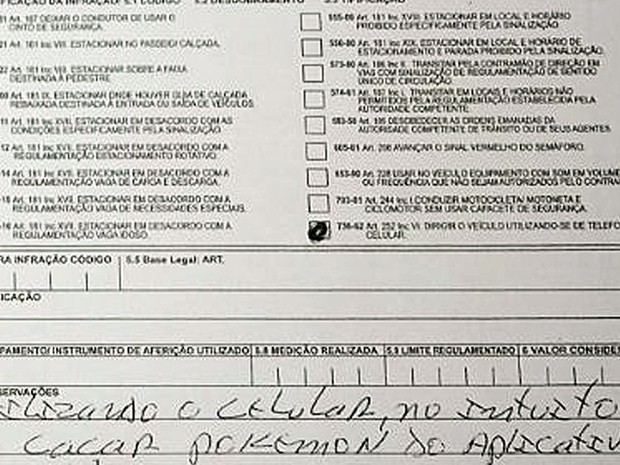 DA INFRAÇÃO/ 5.1 CÓDIGO
Art. 167 DEIXAR O CONDUTOR DE USAR O
CINTO DE SEGURANÇA.
Art. 181 Inc VIII. ESTACIONAR NO PASSEIO/ CALÇADA.
Art. 181 Inc VIII. ESTACIONAR SOBRE A FAIXA
DESTINADA À PEDESTRE
Art. 181 IX. ESTACIONAR ONDE HOUVER GUIA DE CALÇADA
REBAIXADA DESTINADA À ENTRADA OU SAÍDA DE VEÍCULOS.
Art. 181 Inc XVII. ESTACIONAR EM DESACORDO COM AS
CONDIÇÕES ESPECIFICAMENTE PELA SINALIZAÇÃO.
Art. 181 Inc XVII. ESTACIONAR EM DESACORDO COM A
REGULAMENTAÇÃO ESTACIONAMENTO ROTATIVO.
Art. 181 Inc XVII. ESTACIONAR EM DESACORDO COM A
REGULAMENTAÇÃO VAGA DE CARGA E DESCARGA.
Art. 181 Inc XVII. ESTACIONAR EM DESACORDO COM A
REGULAMENTAÇÃO VAGA DE NECESSIDADES ESPECIAIS.
Art. 181 Inc XVII. ESTACIONAR EM DESACORDO COM A
REGULAMENTAÇÃO VAGA IDOSO.
555-00 Art. 181 Inc XVIII. ESTACIONAR EM LOCAL E HORÁRIO
PROIBIDO ESPECIFICAMENTE PELA SINALIZAÇÃO.
556-80 Art. 181 Inc XIX. ESTACIONAR EM LOCAL E HORÁRIO DE
ESTACIONAMENTO E PARADA PROIBIDO PELA SINALIZAÇÃO.
573-80 Art. 186 Inc II. TRANSITAR PELA CONTRAMÃO DE DIREÇÃO EM
VIAS COM SINALIZAÇÃO DE REGULAMENTAÇÃO DE SENTIDO
ÚNICO DE CIRCULAÇÃO.
574-61 Art. 187 Inc I. TRANSITAR EM LOCAIS E HORÁRIOS NÃO
PERMITIDOS PELA REGULAMENTAÇÃO ESTABELECIDA PELA
AUTORIDADE COMPETENTE.
583-50 Art. 195 DESOBEDECER AS ORDENS EMANADAS DA
AUTORIDADE COMPETENTE DE TRÂNSITO OU DE SEUS AGENTES.
605-01 Art. 208 AVANÇAR O SINAL VERMELHO DO SEMÁFORO.
653-00 Art. 228 USAR NO VEÍCULO EQUIPAMENTO COM SOM EM VOLUME
OU FREQUÊNCIA QUE NÃO SEJAM AUTORIZADOS PELO
Art. 244 Inc I CONDUZIR MOTOCICLETA/ MOTONETA E
CICLOMOTOR SEM USAR CAPACETE DE SEGURANÇA.
736-62 Art. 252 Inc VI. DIRIGIR O VEÍCULO UTILIZANDO-SE DE
CELULAR.
RA INFRAÇÃO CÓDIGO 5.5 Base Legal: ART.
ICAÇÃO
PAMENTO/ INSTRUMENTO DE AFERIÇÃO UTILIZADO 5.8 MEDIÇÃO REALIZADA 5.9 LIMITE REGULAMENTADO 6 VALOR CONSIDE
SERVAÇÕES
ILIZANDO O CELULAR, NO INTUITO
CAÇAR POKEMON DO APLICATIV